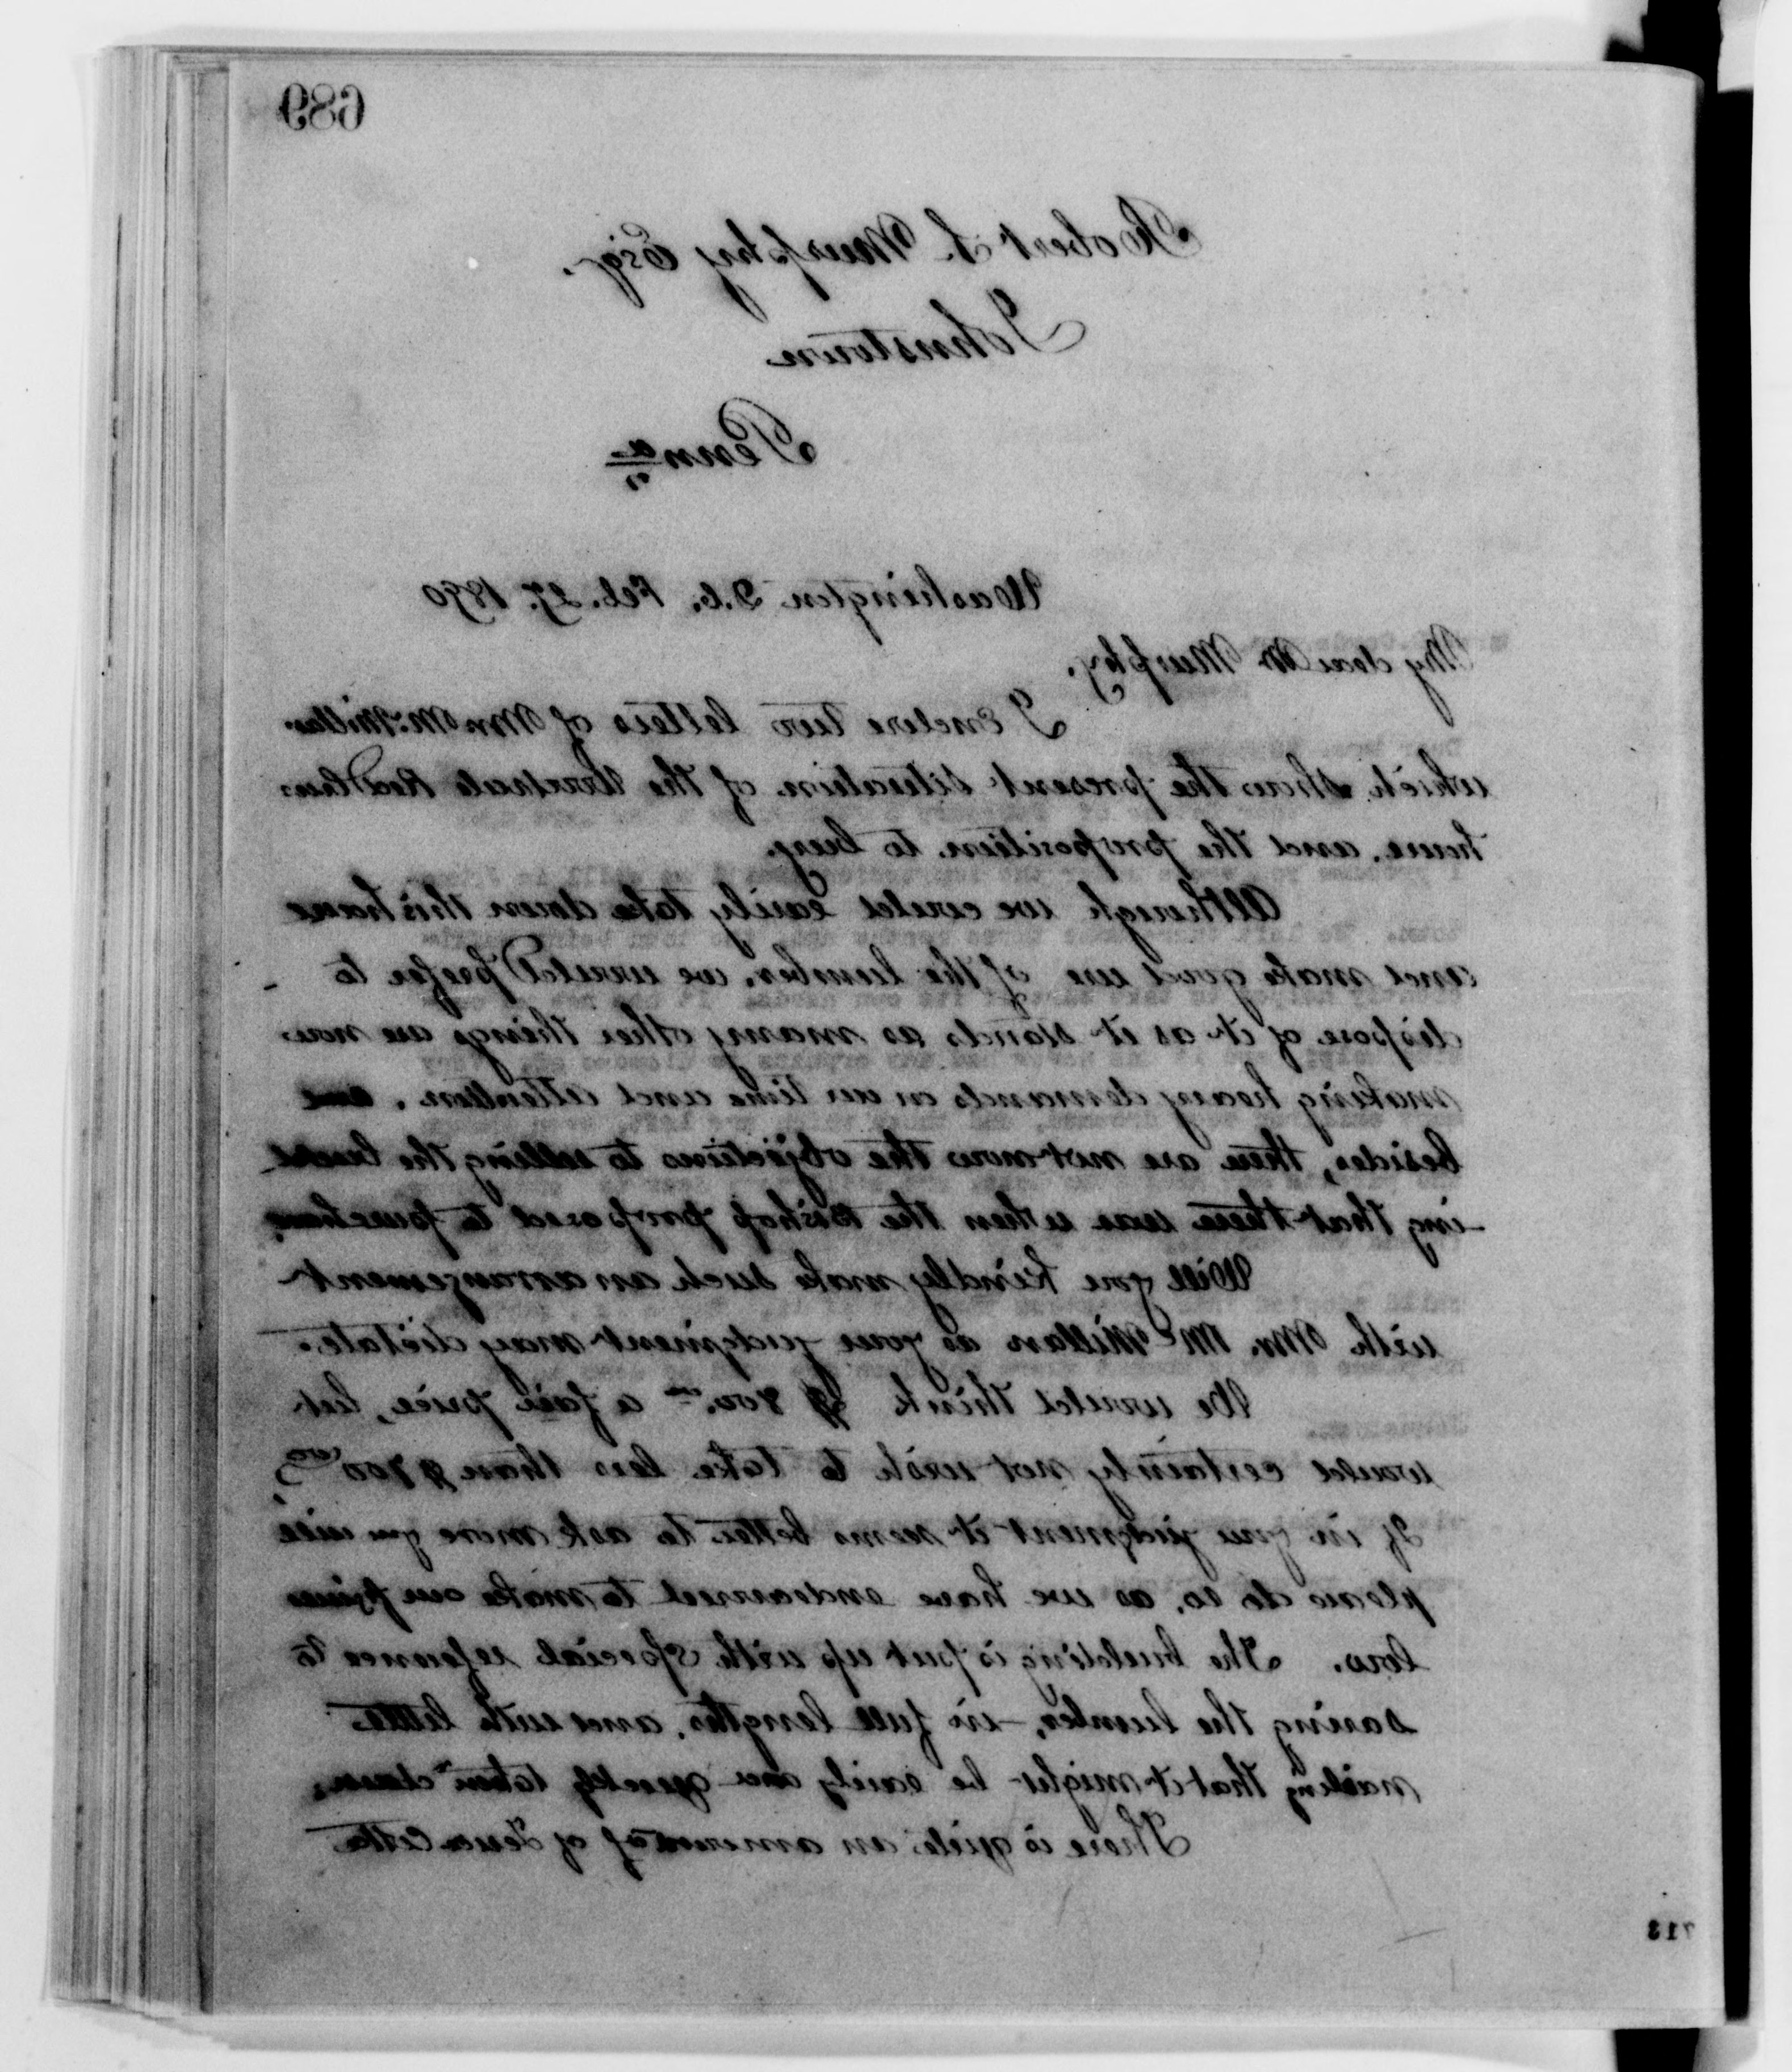 689
Robert S. Murphy Esq.
Johnstown
Penna
Washington D.C. Feb. 27. 1890
My dear Mr Murphy.
I enclose two letters of Mrs. McMillan
which show the present situation of the Woodvale Red
house, and the proposition to buy.
Although we could easily take down this house
and make good use of the lumber, we would prefer to
dispose of it as it stands as many other things are now
making heavy demands on our time and attention.
besides, there are not now the objections to selling the build
-ing that there was when the Bishop proposed to purchase.
Will you kindly make such an arrangement
with Mrs. McMillan as your judgment may dictate.
We would think $800.00 a fair price, but
would certainly not wish to take less than $700
If in your judgment it seems better to ask more you will
please do so, as we have endeavored to make our
low. The building is put up with special reference to
saving the lumber, - in full lengths, and with little
nailing that it might be easily and quickly taken down.
There is quite an amount of of Terra Cotta
713